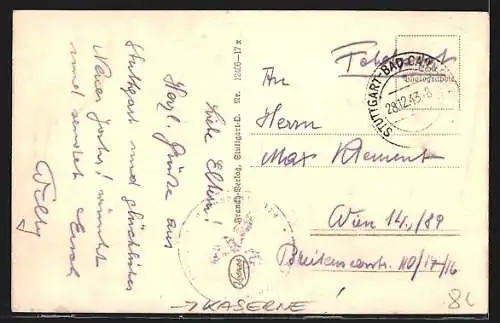 Liebe Eltern!
Herzl. Grüße aus
Stuttgart und glückliches
Neues Jahr! wünscht
und sendet Euch
Willy
Brandt-Verlag, Stuttgart-C. Nr. 12606-17 x
Feldpost
STUTTGART-BAD CAN
28.12.43.-8
An
Herrn
Max Klement
Wien 14., /89
Breitenseerstr. 110/17/16
→ KASERNE!
8L